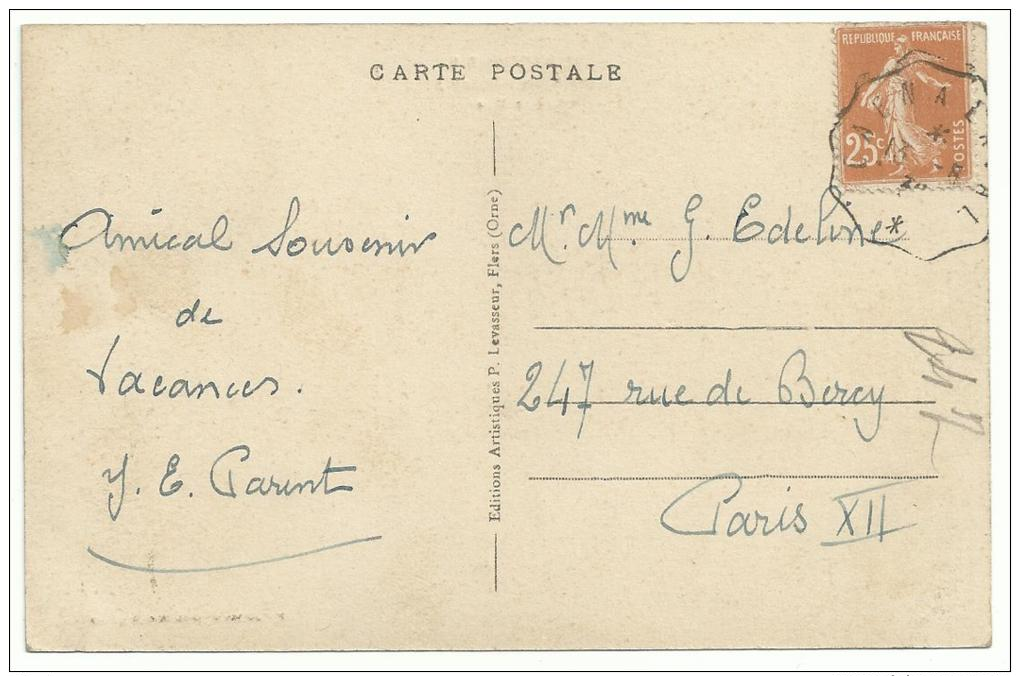 CARTE POSTALE
REPUBLIQUE FRANÇAISE
25c
POSTES
Amical Souvenir
de
Vacances.
Y. E. Parent
Editions Artistiques P. Levasseur, Flers (Orne)
Mr. Mme G. Edeline
247 rue de Bercy
Paris XII